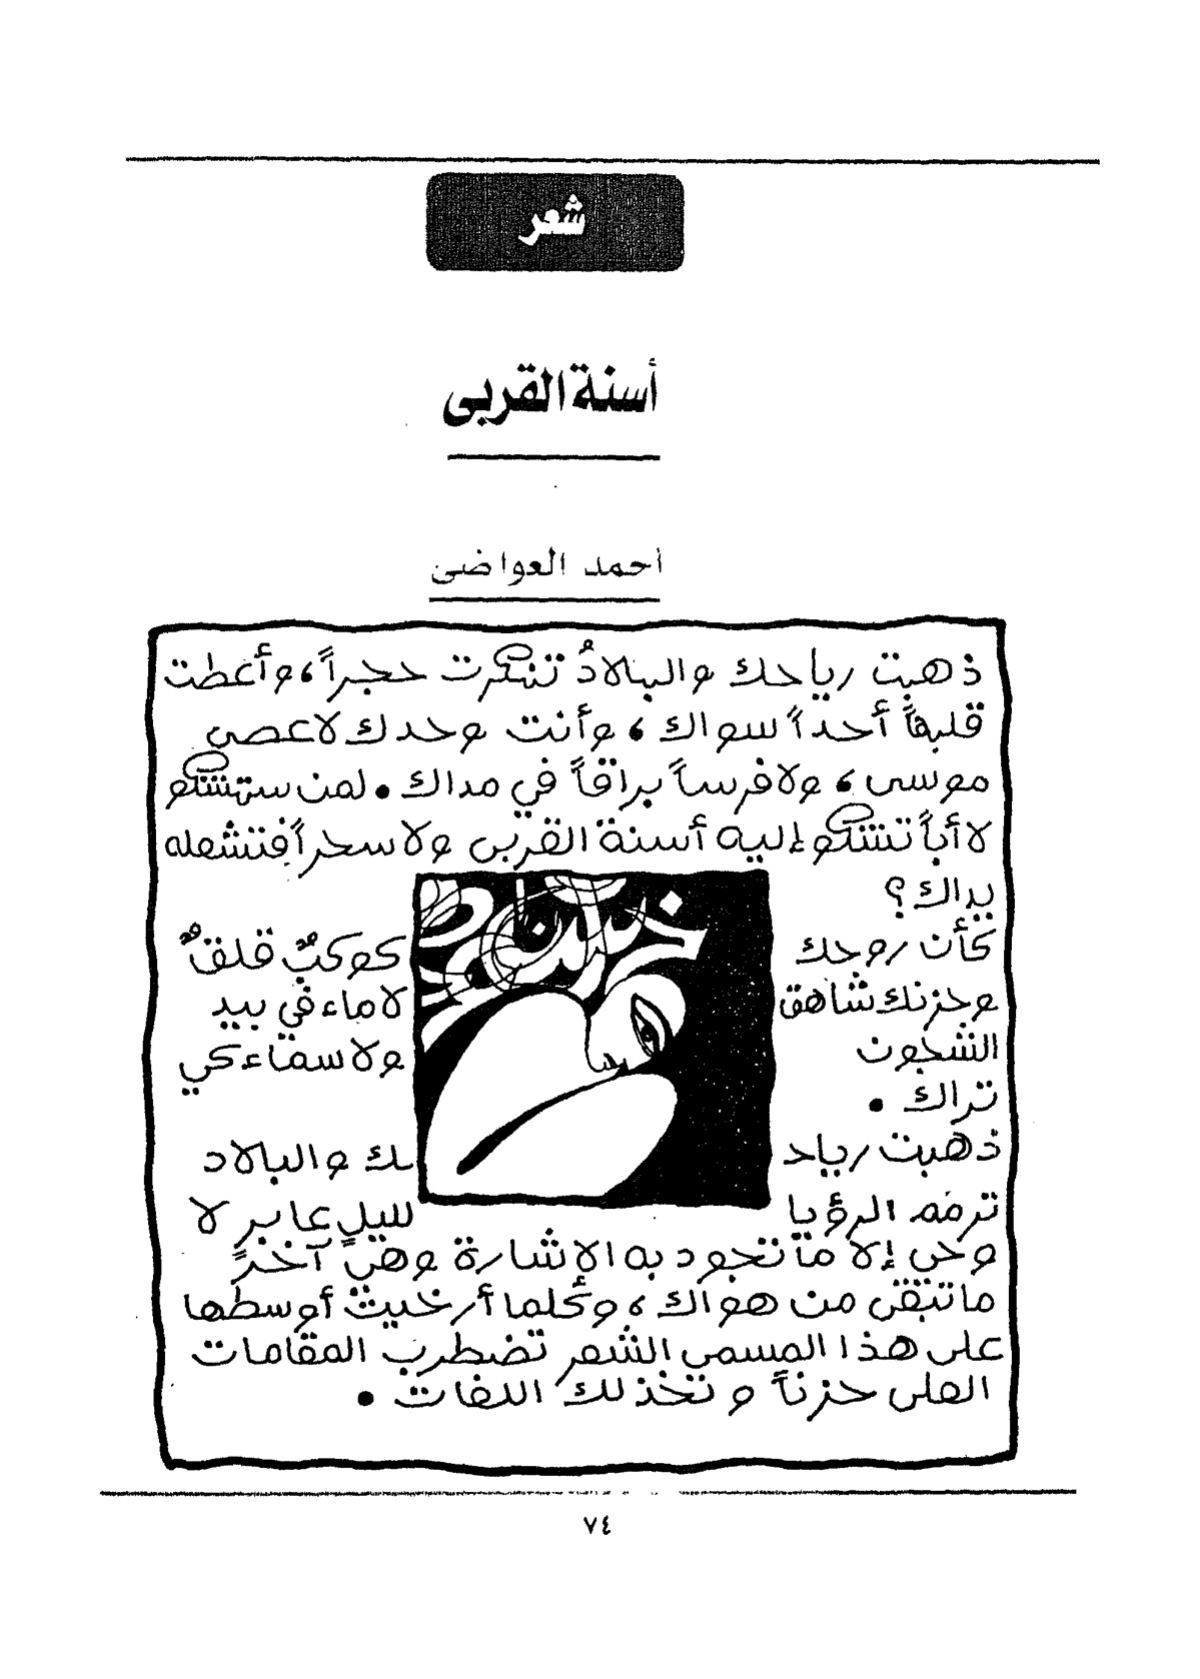 شعر
أسنة القربى
أحمد العواضى
ذهبت رياحك والبلادُ تنكرت حجراً، وأعطت
قلبهاً أحداً سواك ، وأنت وحدك لاعصى
موسى ، ولافرساً براقاً في مداك . لمن ستشكو
لا أباً تشكو إليه أسنة القربى ولاسحراً فتشعله
يداك ؟
كأن روحك كوكبٌ قلقٌ
وحزنك شاهق لاماء في بيد
الشجون ولاسماء كي
تراك .
ذهبت رياحك والبلاد
ترمم الرؤيا لليلٍ عابرٍ لا
وحى إلا ماتجود به الإشارة وهى آخر
ماتبقى من هواك ، وكلما أرخيت أوسطها
على هذا المسمى الشعر تضطرب المقامات
العلى حزناً وتخذلك اللغات .
٧٤